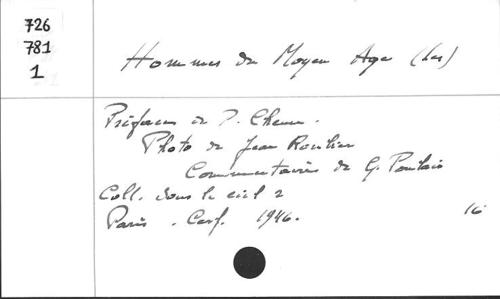 726
781
1
Hommes du Moyen Age (Les)
Préfaces de P. Chenu.
Photo de Jean Roubier
Commentaires de G. Poulain
Coll. dans le ciel 2
Paris. Cerf. 1946.
16